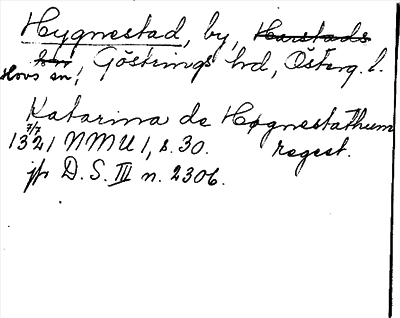 Hygnestad, by, Harstads
Hovs sn, Göstrings hd, Österg. l.
Katarina de Høgnestathum
7/7
1321 NMU 1, s. 30. regest.
jfr D. S. III n. 2306.